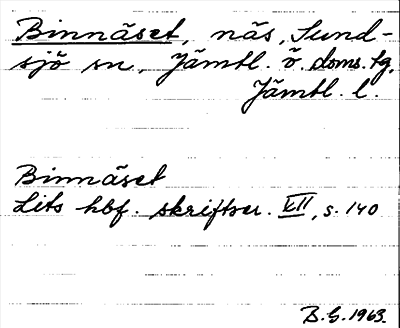 Binnäset, näs, Sund-
sjö sn, Jämtl. ö. doms. tg,
Jämtl. l.
Binnäset
Lits hbf. skriftser. VII, s. 140
B.G. 1963.